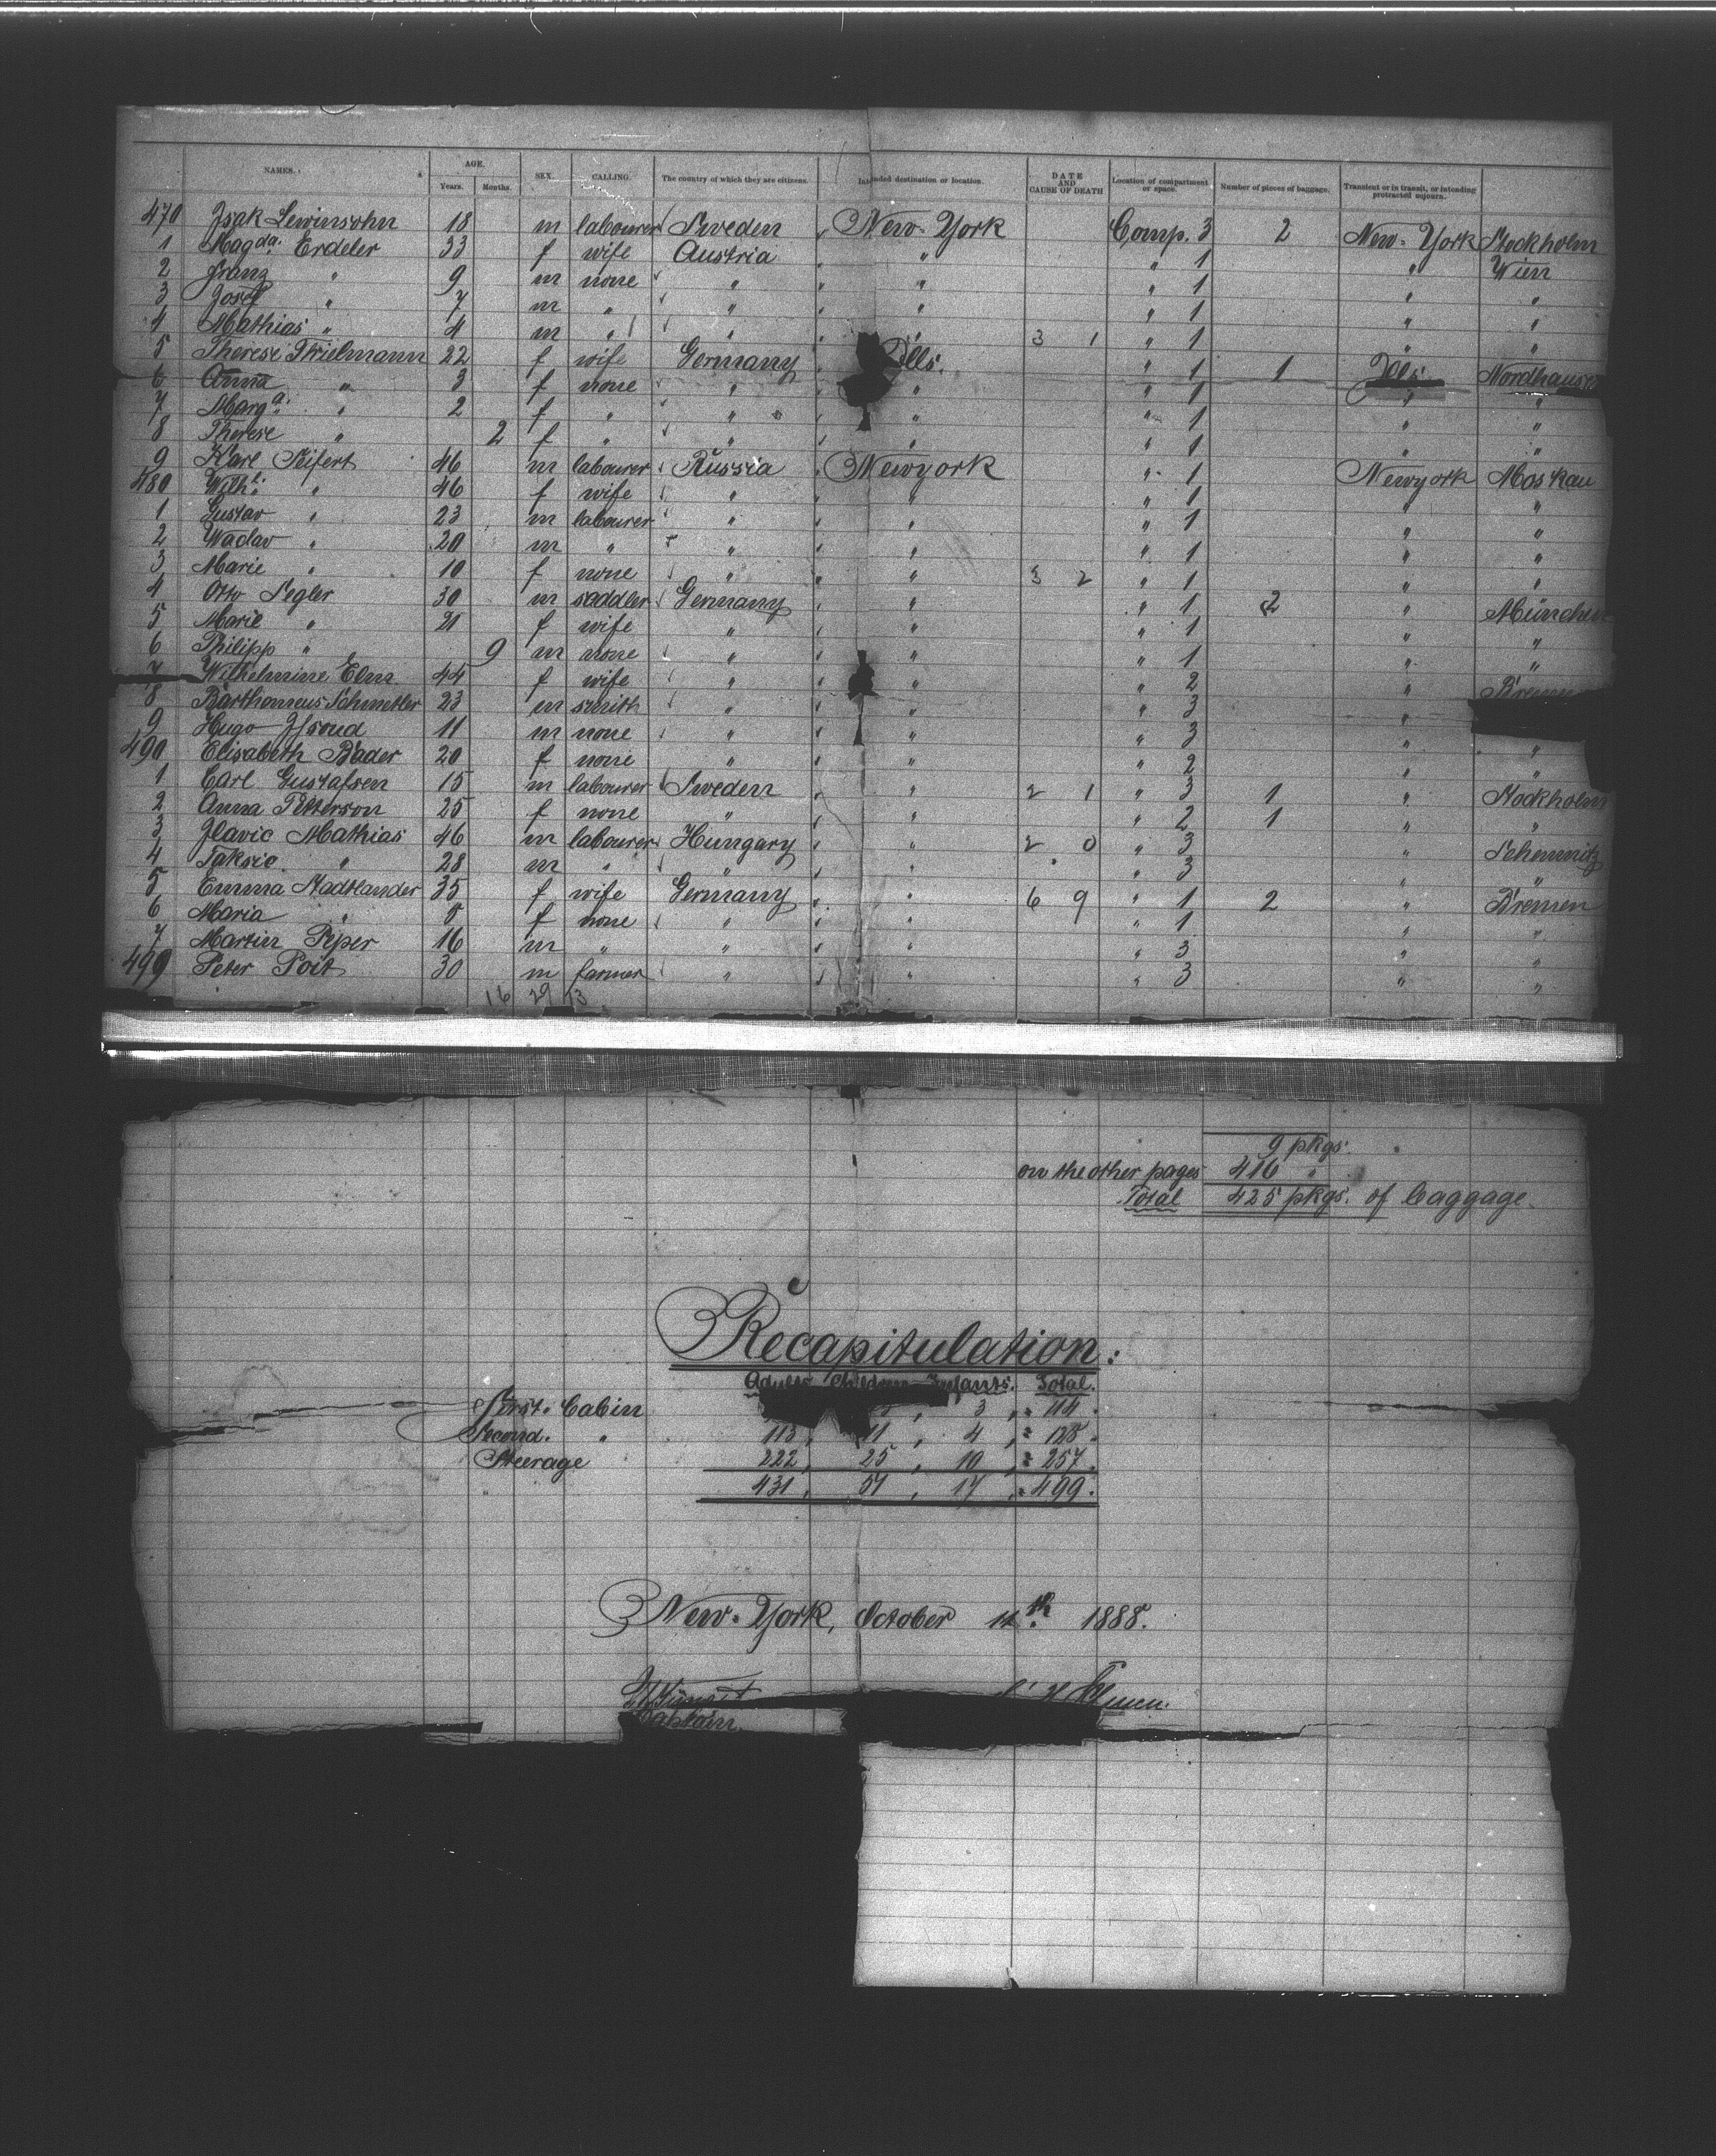 NAMES. AGE. Years. Months. SEX. CALLING. The country of which they are citizens. Intended destination or location. DATE AND CAUSE OF DEATH Location of compartment or space. Number of pieces of baggage. Transient or in transit, or intending protracted sojourn.
470 Isak Lewinsohn 18 m labourer Sweden New-York Comp. 3 2 New-York Stockholm
1 Magda. Erdeler 33 f wife Austria " " 1 " Wien
2 Franz " 9 m none " " " 1 " "
3 Josef " 7 m " " " " 1 " "
4 Mathias " 4 m " " " 3 1 " 1 " "
5 Therese Thielmann 22 f wife Germany Ills. " 1 1 Ills. Nordhausen
6 Anna " 3 f none " " " 1 " "
7 Marga. " 2 f " " " " 1 " "
8 Therese " 2 f " " " " 1 " "
9 Karl Seifert 46 m labourer Russia Newyork " 1 Newyork Moskau
480 Wilh. " 46 f wife " " " 1 " "
1 Gustav " 23 m labourer " " " 1 " "
2 Wadav " 20 m " " " " 1 " "
3 Marie " 10 f none " " 3 2 " 1 " "
4 Otto Segler 30 m saddler Germany " " 1 2 " München
5 Marie " 21 f wife " " " 1 " "
6 Philipp " 9 m none " " " 1 " "
7 Wilhelmine Elm 44 f wife " " " 2 " Bremen
8 Barthomeus Schmetler 23 m smith " " " 3 "
9 Hugo 11 m none " " " 3 " "
490 Elisabeth Bader 20 f none " " " 2 " "
1 Carl Gustafsen 15 m labourer Sweden " 2 1 " 3 1 " Stockholm
2 Anna Petterson 25 f none " " " 2 1 " "
3 Ilavic Mathias 46 m labourer Hungary " 2 0 " 3 " Schemnitz
4 Taksic " 28 m " " " " 3 " "
5 Emma Stadtlander 35 f wife Germany " 6 9 " 1 2 " Bremen
6 Maria " 8 f none " " " 1 " "
7 Martin Piper 16 m " " " " 3 " "
499 Peter Poit 30 m farmer " " " 3 " "
16 29 13
9 pkgs.
on the other pages 416 "
Total 425 pkgs. of baggage.
Recapitulation:
Adults Children Infants. Total.
First. Cabin 3 " 114.
Second. " 113, 11, 4, " 128.
Steerage 222, 25, 10, " 257.
431, 51, 17, " 499.
New-York, October 11th 1888.
Captain.